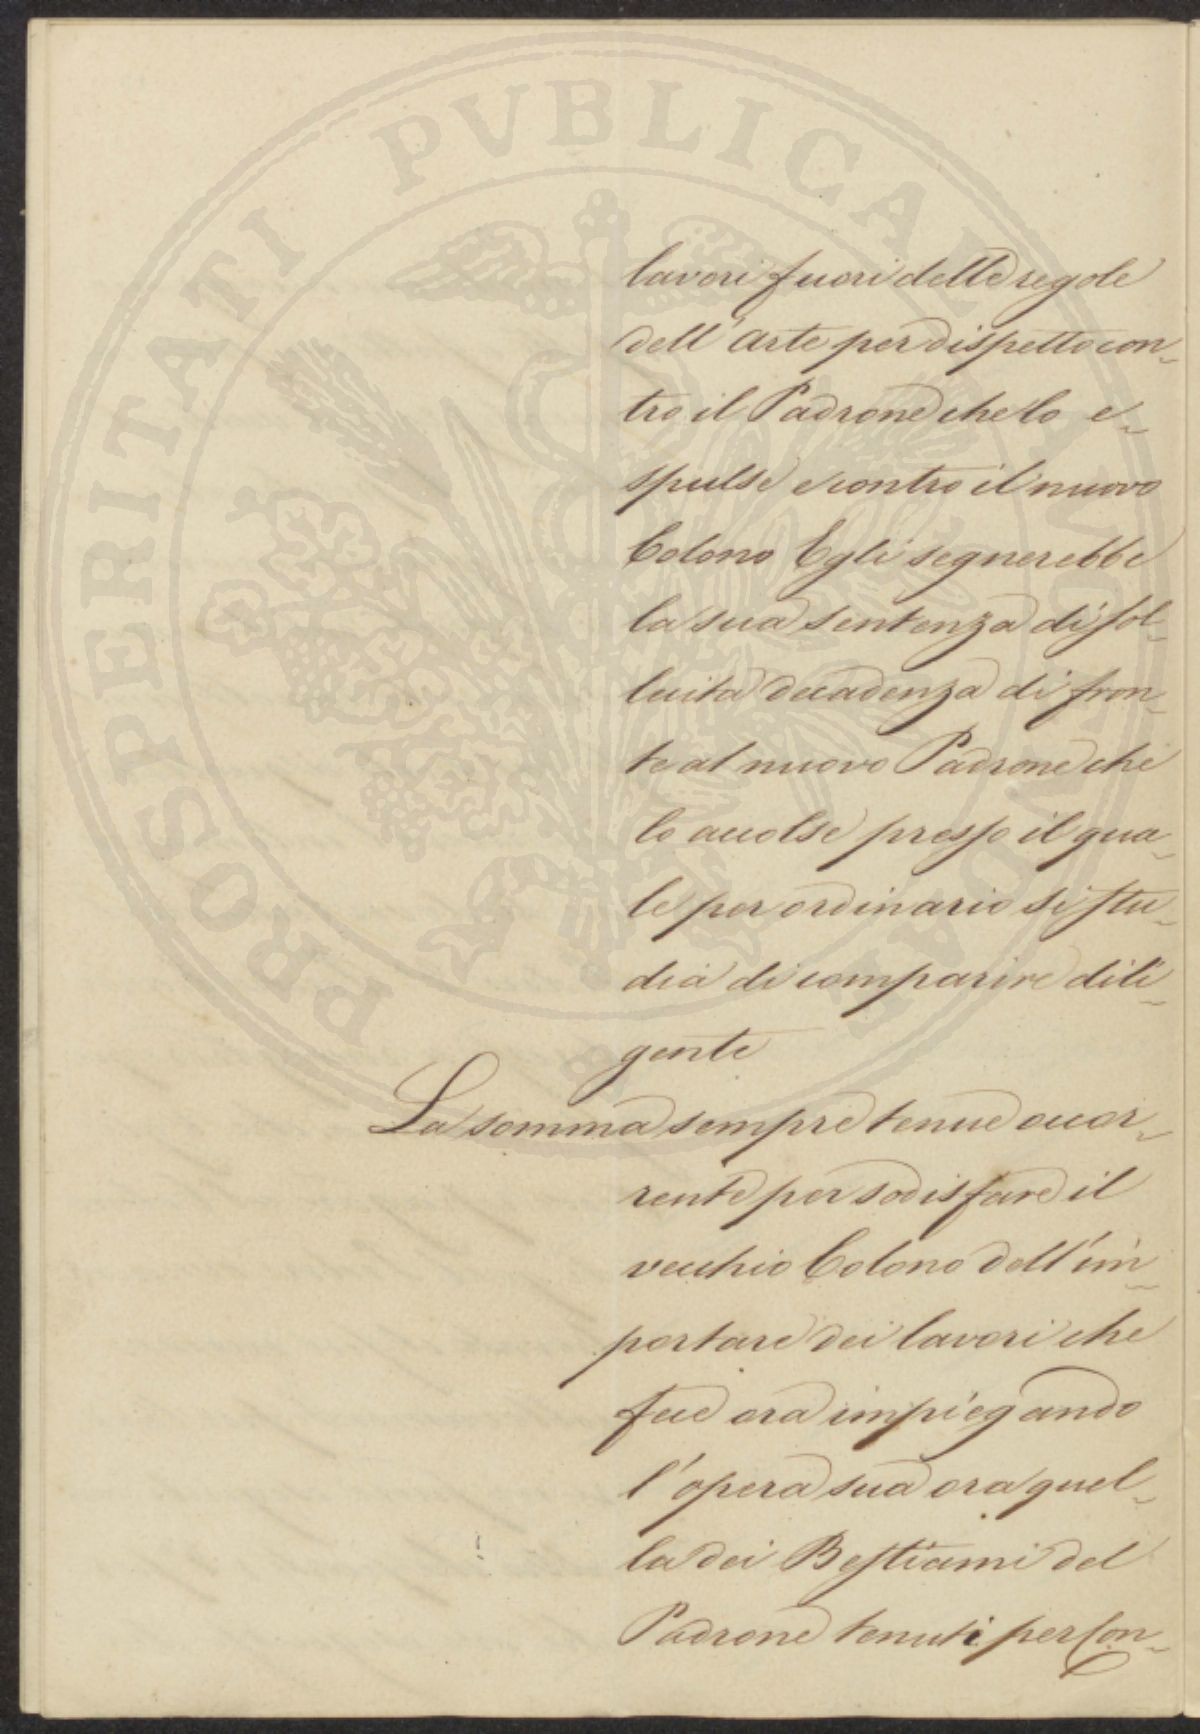 lavori fuori delle regole
dell'arte per dispetto con-
tro il Padrone che lo e-
spulse e contro il nuovo
Colono Egli segnerebbe
la sua sentenza di sol-
lecita decadenza di fron-
te al nuovo Padrone che
lo accolse presso il qua-
le per ordinario si stu-
dia di comparire dili-
gente
La somma sempre tenue occor-
rente per sodisfare il
vecchio Colono dell'im-
portare dei lavori che
fece ora impiegando
l'opera sua ora quel-
la dei Bestiami del
Padrone tenuti per con-
PROSPERITATI PVBLICAE AVGENDAE